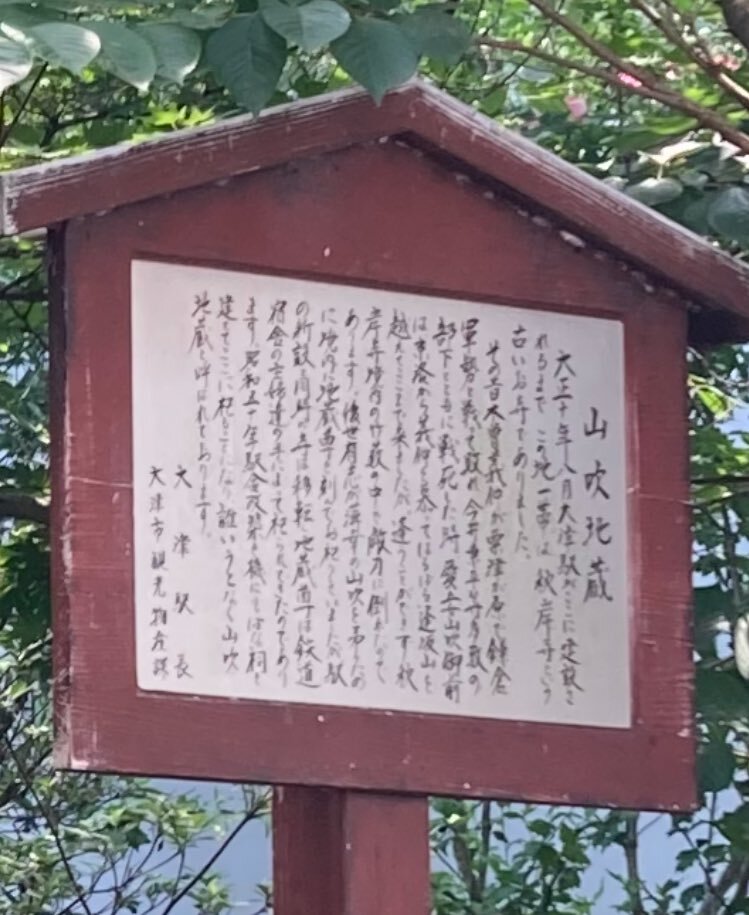 山吹地蔵
大正十年八月大津駅がここに建設さ
れるまでこの地一帯は秋岸寺という
古いお寺でありました。
その昔木曽義仲が粟津が原で鎌倉
軍勢と戦って敗れ今井
部下とともに戦死した時愛妾山吹御前
は京洛から義仲を慕ってはるばる逢坂山を
越えてここまで来ましたが逢うことができず秋
岸寺境内の竹藪の中で敵刃に倒れたので
あります。後世有志が薄幸の山吹を
に境内に地蔵尊を刻んでお祀りしていましたが駅
の新設と同時に寺は移転地蔵尊は鉄道
宿舎の主婦達の手によって祀られてきたのであり
ます。昭和五十年駅舎改築を機にそばな祠を
建ててここに祀ることになり誰いうとなく山吹
地蔵と呼ばれております。
大津駅長
大津市観光物産課